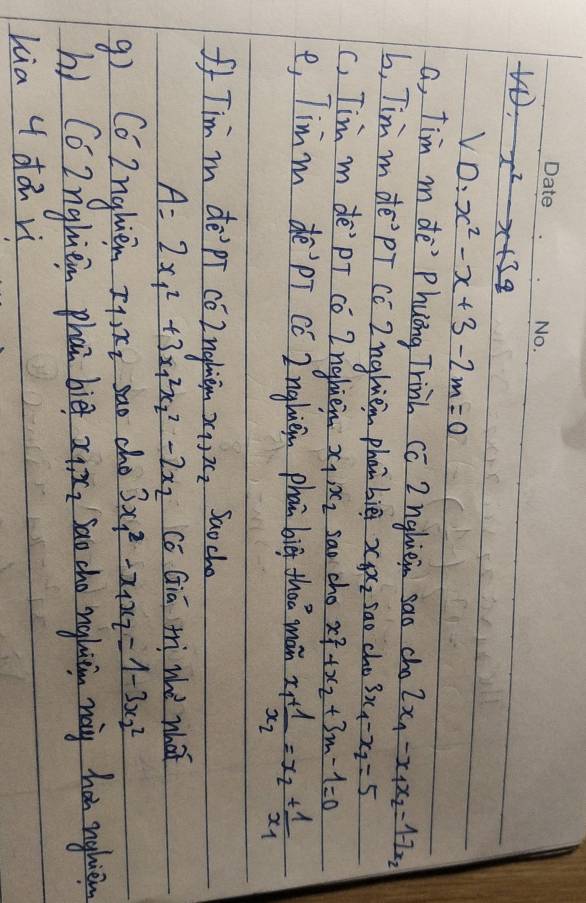 Date No.
VD: x² - x + 3 - 2m = 0
a, Tìm m để phương Trình có 2 nghiệm sao cho 2x₁ - x₁x₂ = 1 - 2x₂
b, Tìm m để PT có 2 nghiệm phân biệt x₁x₂ sao cho 3x₁ - x₂ = 5
c, Tìm m để PT có 2 nghiệm x₁, x₂ sao cho x₁² + x₂ + 3m - 1 = 0
e, Tìm m để PT có 2 nghiệm phân biệt thỏa mãn x₁ + 1/x₂ = x₂ + 1/x₁
f, Tìm m để PT có 2 nghiệm x₁, x₂ sao cho
A = 2x₁² + 3x₁²x₂² - 2x₂ có Giá trị nhỏ nhất
g) Có 2 nghiệm x₁, x₂ sao cho 3x₁² - x₁x₂ = 1 - 3x₂²
h) Có 2 nghiệm phân biệt x₁, x₂ sao cho nghiệm này hơn nghiệm
kia 4 đơn vị